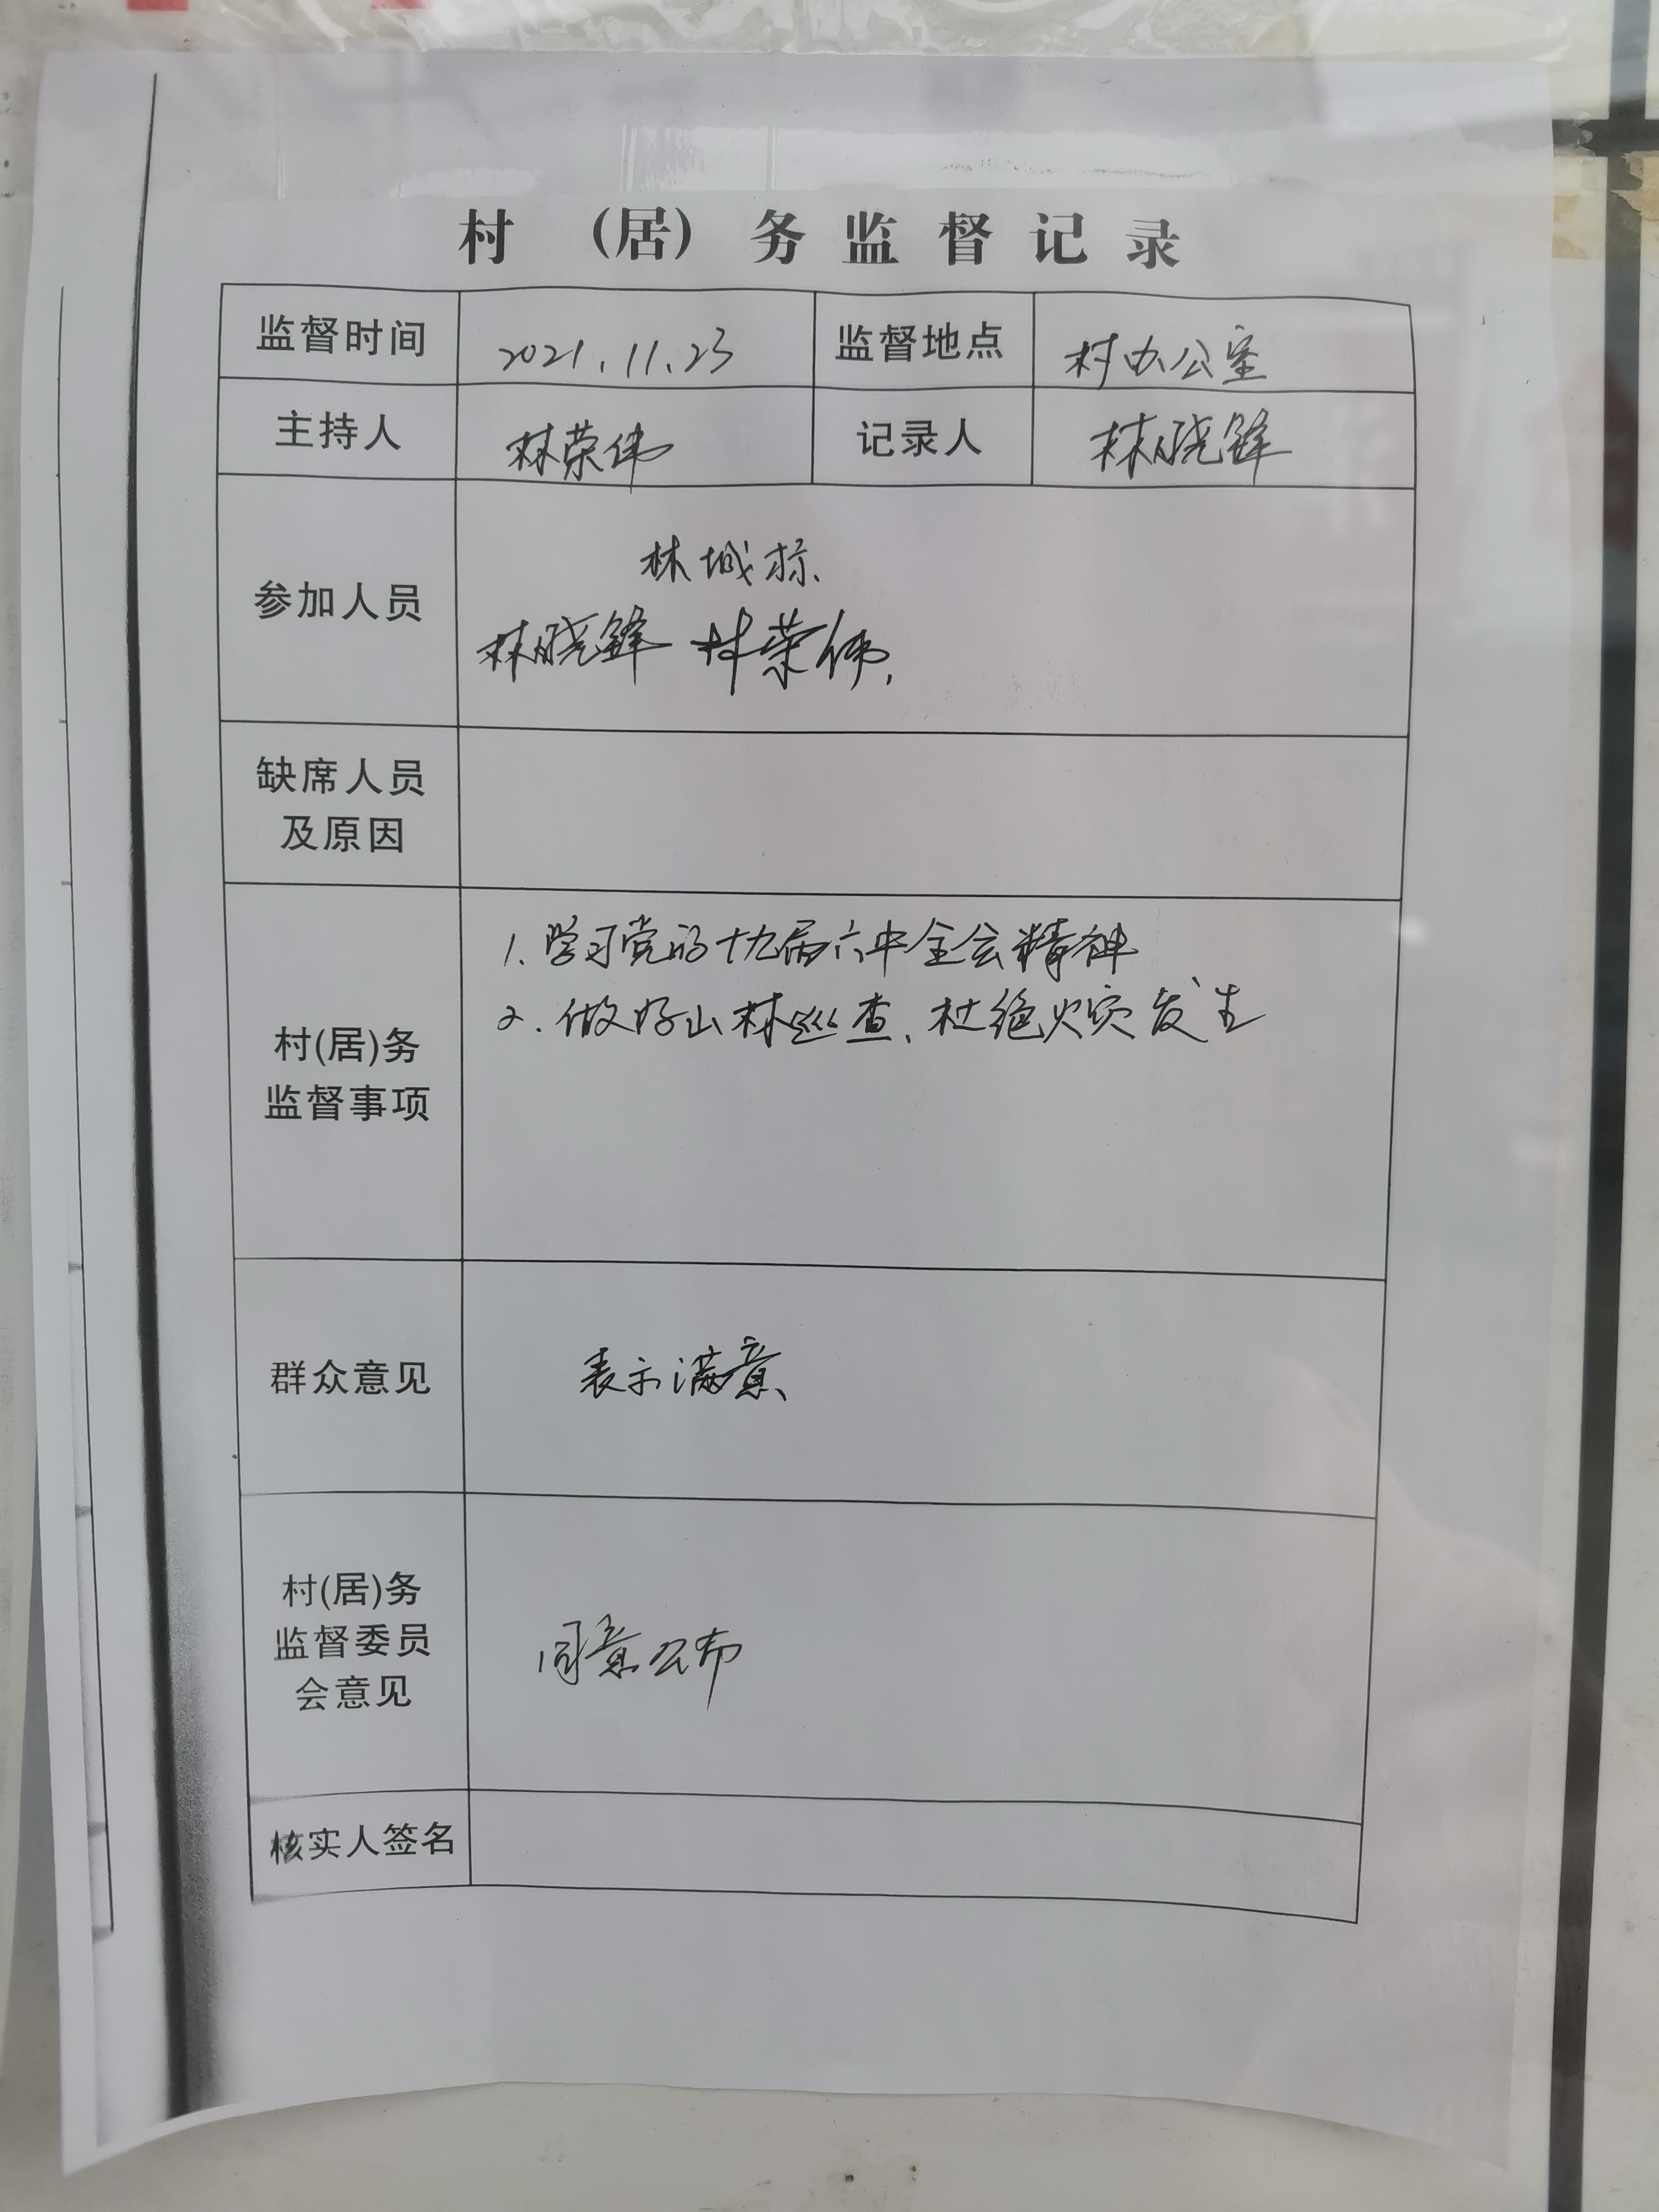 村 (居) 务监督记录
监督时间 2021.11.23 监督地点 村办公室
主持人 林荣伟 记录人 林晓锋
参加人员
林城标、
林晓锋 林荣伟.
缺席人员
及原因
村(居)务
监督事项
1.学习党的十九届六中全会精神
2.做好山林巡查、杜绝火灾发生
群众意见 表示满意、
村(居)务
监督委员
会意见
同意公布
核实人签名